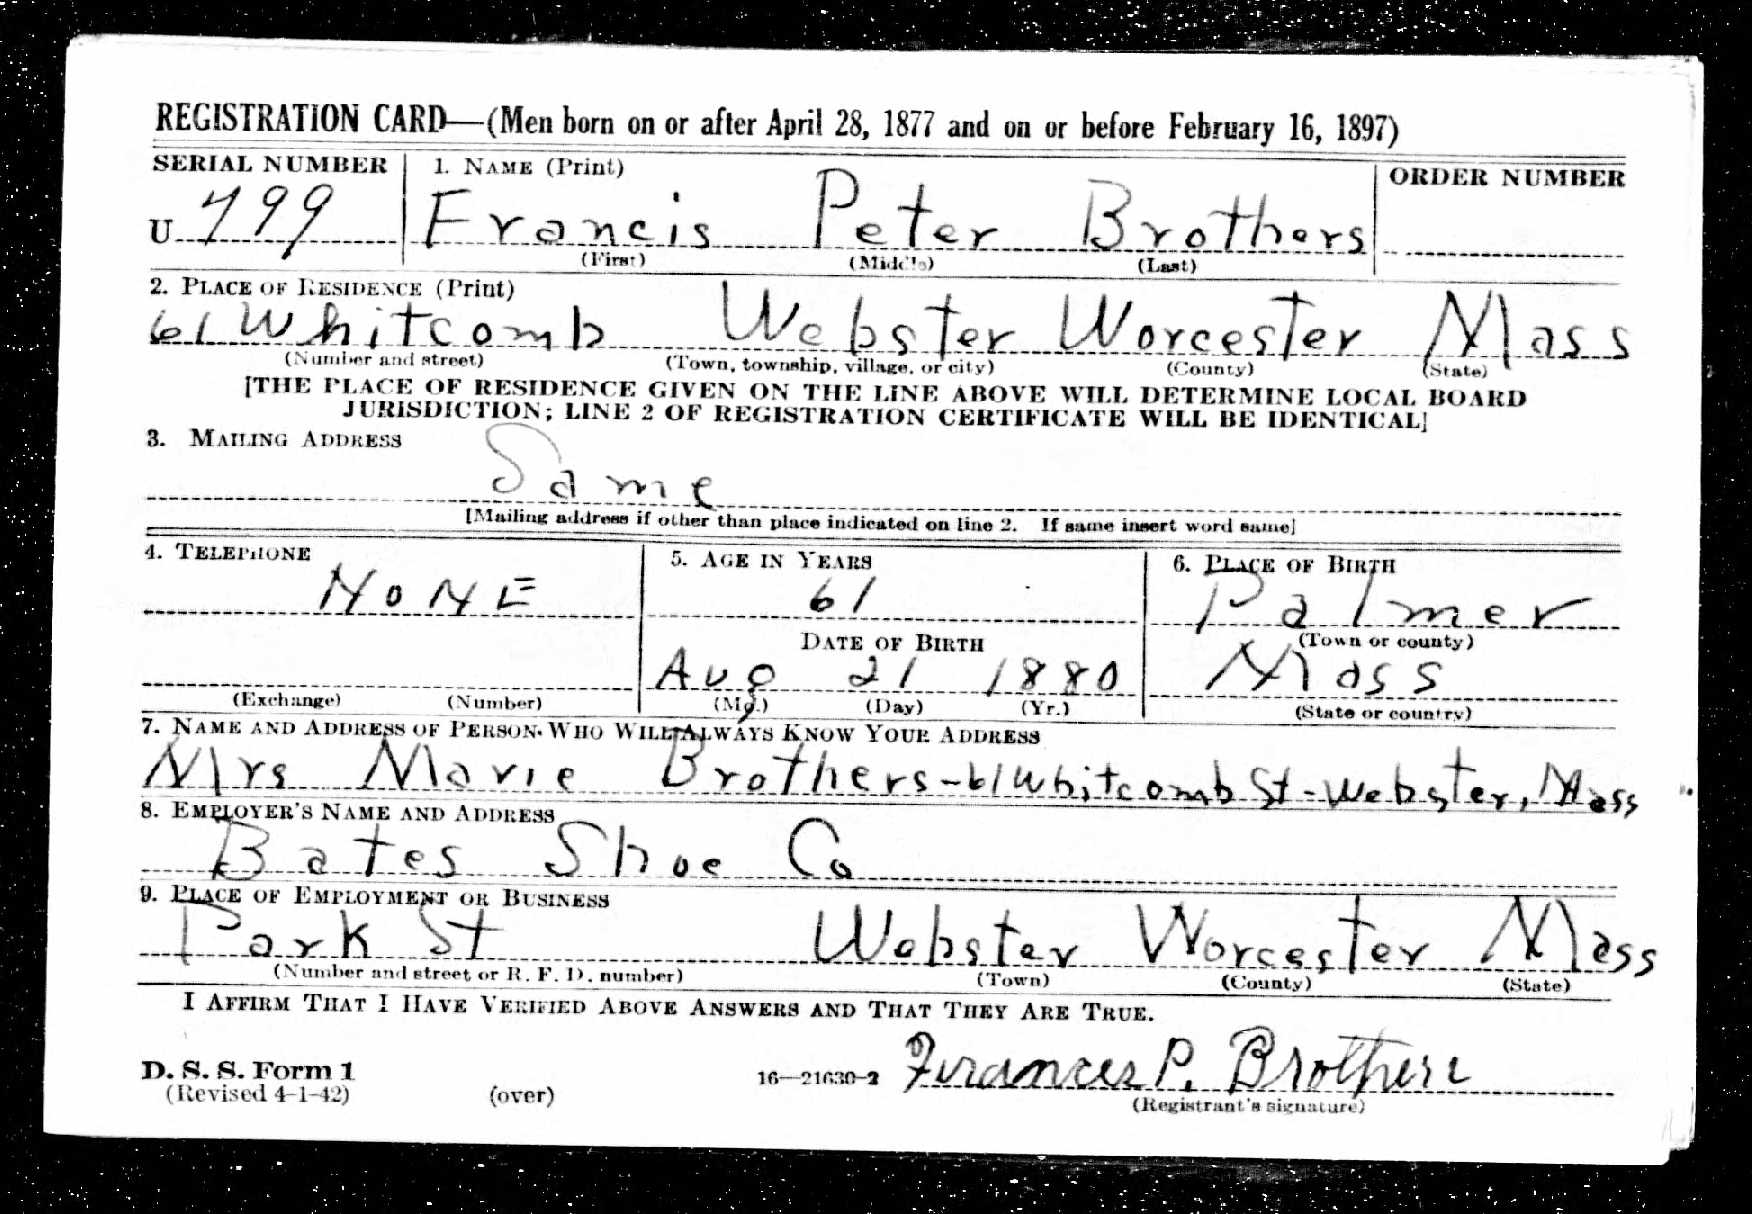 REGISTRATION CARD—(Men born on or after April 28, 1877 and on or before February 16, 1897)
SERIAL NUMBER 1. NAME (Print) ORDER NUMBER
U 799 Francis Peter Brothers
(First) (Middle) (Last)
2. PLACE OF RESIDENCE (Print)
61 Whitcomb Webster Worcester Mass
(Number and street) (Town, township, village, or city) (County) (State)
[THE PLACE OF RESIDENCE GIVEN ON THE LINE ABOVE WILL DETERMINE LOCAL BOARD
JURISDICTION; LINE 2 OF REGISTRATION CERTIFICATE WILL BE IDENTICAL]
3. MAILING ADDRESS
Same
[Mailing address if other than place indicated on line 2. If same insert word same]
4. TELEPHONE 5. AGE IN YEARS 6. PLACE OF BIRTH
NONE 61 Palmer
DATE OF BIRTH (Town or county)
Aug 21 1880 Mass
(Exchange) (Number) (Mo.) (Day) (Yr.) (State or country)
7. NAME AND ADDRESS OF PERSON WHO WILL ALWAYS KNOW YOUR ADDRESS
Mrs Marie Brothers-61 Whitcomb St-Webster, Mass
8. EMPLOYER'S NAME AND ADDRESS
Bates Shoe Co
9. PLACE OF EMPLOYMENT OR BUSINESS
Park St Webster Worcester Mass
(Number and street or R. F. D. number) (Town) (County) (State)
I AFFIRM THAT I HAVE VERIFIED ABOVE ANSWERS AND THAT THEY ARE TRUE.
D. S. S. Form 1
(Revised 4-1-42) (over) 16—21630-2 Francis P. Brothers
(Registrant's signature)